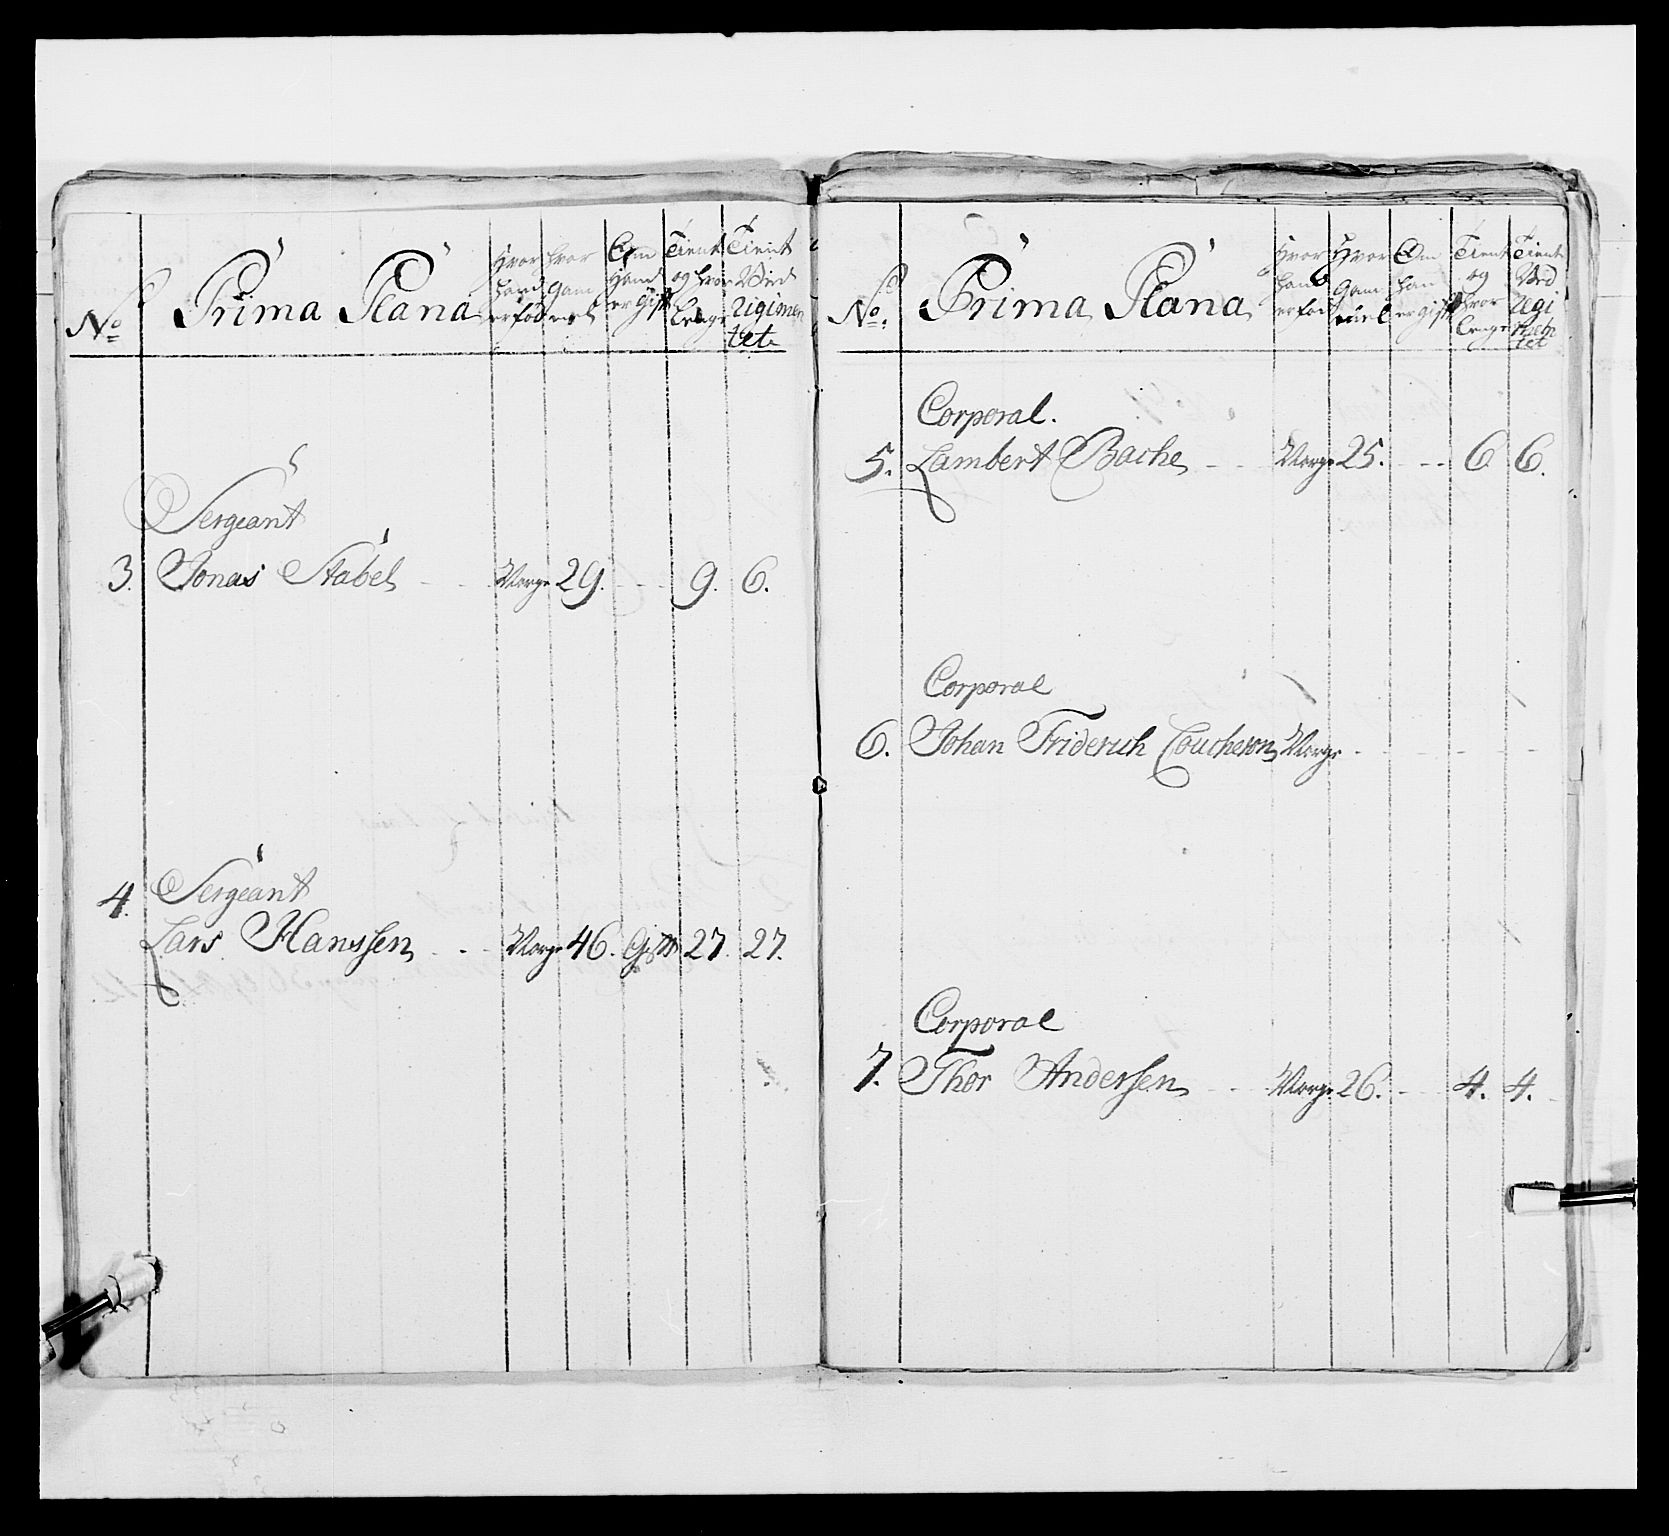 No Prima Plana Hvor hand er fød hvor gam mel Om Hand er gift Tient og hvor lenge Tient Ved Regimen tet
Sergeant
3. Jonas Stabel - - Norge 29. - - 9. 6.
4. Sergeant
Lars Hanssen - - Norge 46. Gift 27. 27.
No. Prima Plana Hvor hand er fød Hvor gam mel Om han er gift Tient og hvor lenge Tient Ved Regi men tet
Corporal.
5. Lambert Bache - - Norge 25. - - 6 6.
Corporal
6. Johan Friderich Coucheron Norge - - - - -
Corporal
7. Thor Andersen - - Norge 26. - - 4. 4.